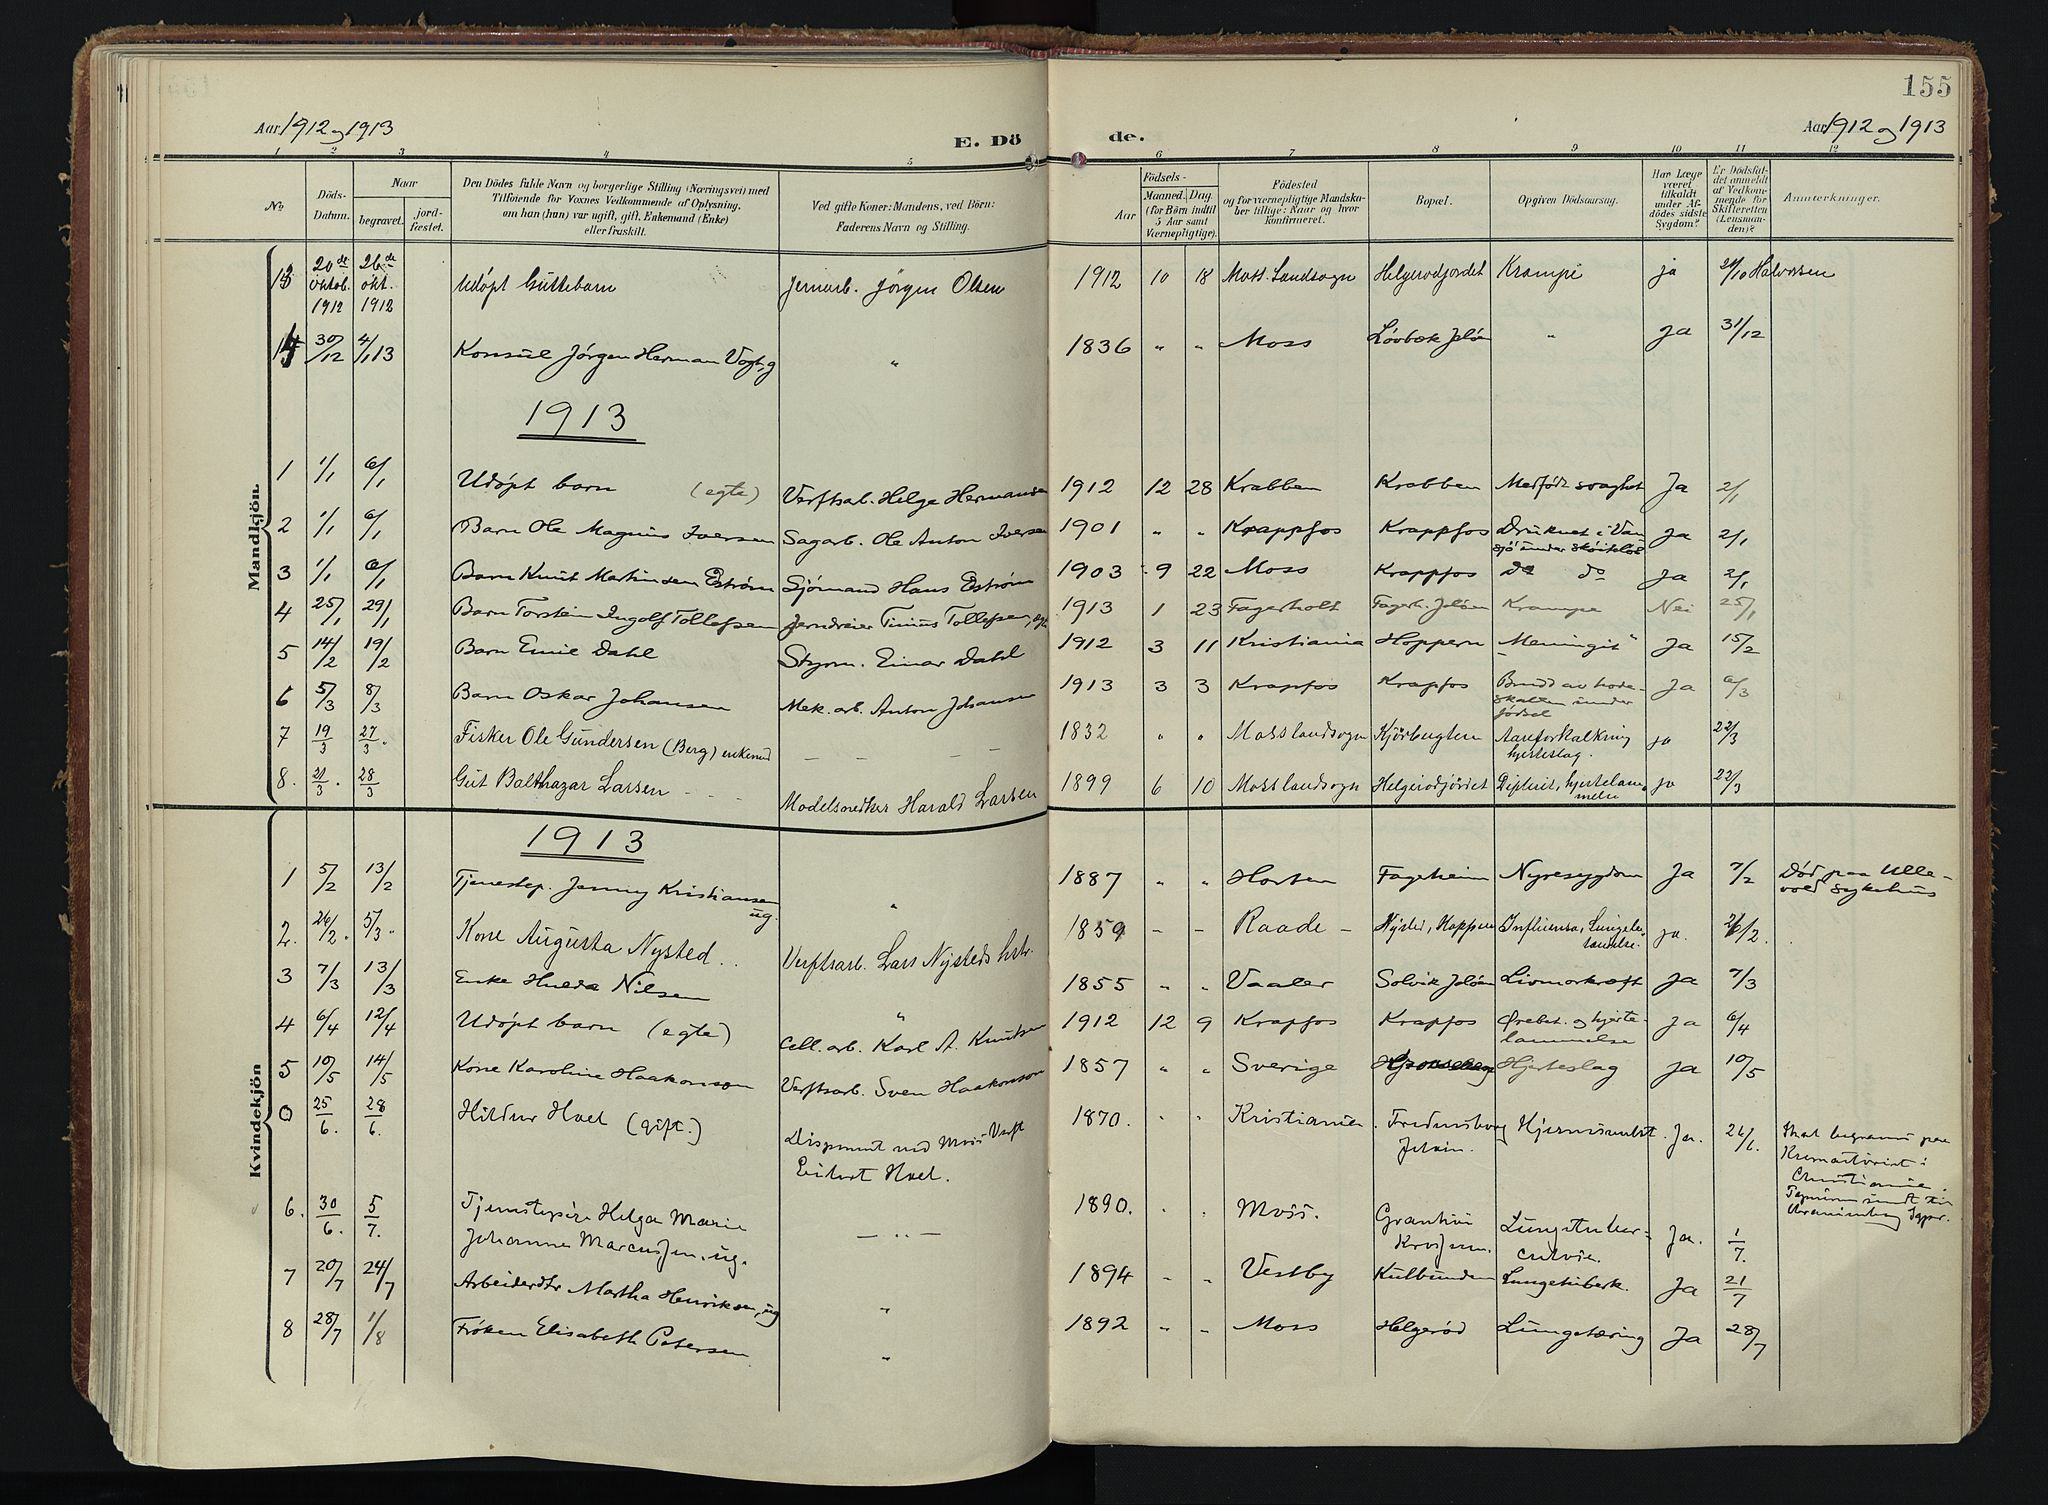 155
Aar 1912 og 1913
E. Döde.
Aar 1912 og 1913
1 2 3 4 5 6 7 8 9 10 11 12
No
Döds-Datum.
Naar
begravet.
jord-fæstet.
Den Dödes fulde Navn og borgerlige Stilling (Næringsvei) med
Tilföiende for Voxnes Vedkommende af Oplysning,
om han (hun) var ugift, gift, Enkemand (Enke)
eller fraskilt.
Ved gifte Koner: Mandens, ved Börn:
Faderens Navn og Stilling.
Födsels-
Aar
Maaned. Dag.
(for Börn indtil
5 Aar samt
Værnepligtige).
Födested
og for værnepligtige Mandska-
ber tillige: Naar og hvor
konfirmeret.
Bopæl.
Opgiven Dödsaarsag.
Har Læge
været
tilkaldt
under Af-
dödes sidste
Sygdom?
Er Dödsfal-
det anmeldt
af Vedkom-
mende for
Skifteretten
(Lensman-
den)?
Anmærkninger.
Mandkjön
13 20de oktob. 1912 26de okt. 1912 Udøpt Guttebarn Jernarb. Jörgen Olsen 1912 10 18 Moss Landsogn Helgerødjordet Krampe ja 21/10 Halvorsen
14 30/12 4/1 13 Konsul Jörgen Herman Vogt, g " 1836 " " Moss Lövbæk Jelöen " Ja 31/12
1913
1 1/1 6/1 Udøpt barn (egte) Verftsarb. Helge Hermansen 1912 12 28 Krabben Krabben Medfödt svaghet Ja 2/1
2 1/1 6/1 Barn Ole Magnus Iversen Sagarb. Ole Anton Iversen 1901 " " Krappfos Krappfos Druknet i Van
sjö under skøiteløb Ja 2/1
3 1/1 6/1 Barn Knut Martinsen Eström Sjömand Hans Eström 1903 9 22 Moss Krappfos do do Ja 2/1
4 25/1 29/1 Barn Torstein Ingolf Tollefsen Jerndreier Tinius Tollefsen, 1913 1 23 Fagerholt Fagerh. Jelöen Krampe Nei 25/1
5 14/2 19/2 Barn Emil Dahl Styrm. Einar Dahl 1912 3 11 Kristiania Hoppern "Meningit" Ja 15/2
6 5/3 8/3 Barn Oskar Johansen Mek. arb. Anton Johansen 1913 3 3 Krapfos Krapfos Brudd av hode-
skallen under
födsel Ja 6/3
7 19/3 27/3. Fisker Ole Gundersen (Berg) enkemd — — — 1832 " " Moss landsogn Kjörbugten Aareforkalkning
hjerteslag. ja 22/3
8. 21/3. 28/3 Gut Balthazar Larsen - - - Modelsnedker Harald Larsen 1899 6 10 Moss landsogn Helgerødjordet Difterit, hjertelam-
melse ja 22/3
Kvindekjön
1913
1 5/2 13/2 Tjenestep. Jenny Kristiansen
ug. " 1887 " " Horten Fageheim Nyresygdom Ja 7/2 Död paa Ulle-
vold sykehus
2. 26/2. 5/3. Kone Augusta Nysted . . Verftsarb. Lars Nysteds hstr. 1859 - - Raade - Nysted, Hoppern Influensa, Lungebe-
tændelse. ja. 26/2.
3 7/3 13/3 Enke Hulda Nilsen " 1855 " " Vaaler Solvik Jelöen Livmorkræft Ja 7/3
4 6/4 12/4 Udøpt barn (egte) Cell. arb. Karl A. Knutsen 1912 12 9 Krapfos Krapfos Ørebet. og hjerte-
lammelse Ja 6/4
5 10/5 14/5 Kone Karoline Haakonson Verftsarb. Sven Haakonson 1857 " " Sverige Hjerteslag Ja 10/5
0 25/6. 28/6. Hildur Hvel (gift.) Disponent ved Moss Verft
Hvel. 1870. " " Kristiania. Fredensborg
Jeløen. Ja. 26/6. Skal begraves paa
Krematoriet i
Christiania.
6. 30/6. 5/7. Tjenestepige Helga Marie
Johanne Marcussen, ug. — " — 1890. " " Moss. Lungetuber-
culose. Ja. 1/7.
7 20/7 24/7 Arbeiderdtr Martha Henriksen, ug " 1894 " " Vestby Kulbunden Lungetuberk. Ja 21/7
8 28/7 1/8 Frøken Elisabeth Petersen " 1892 " " Moss Helgerød Lungetæring Ja 28/7